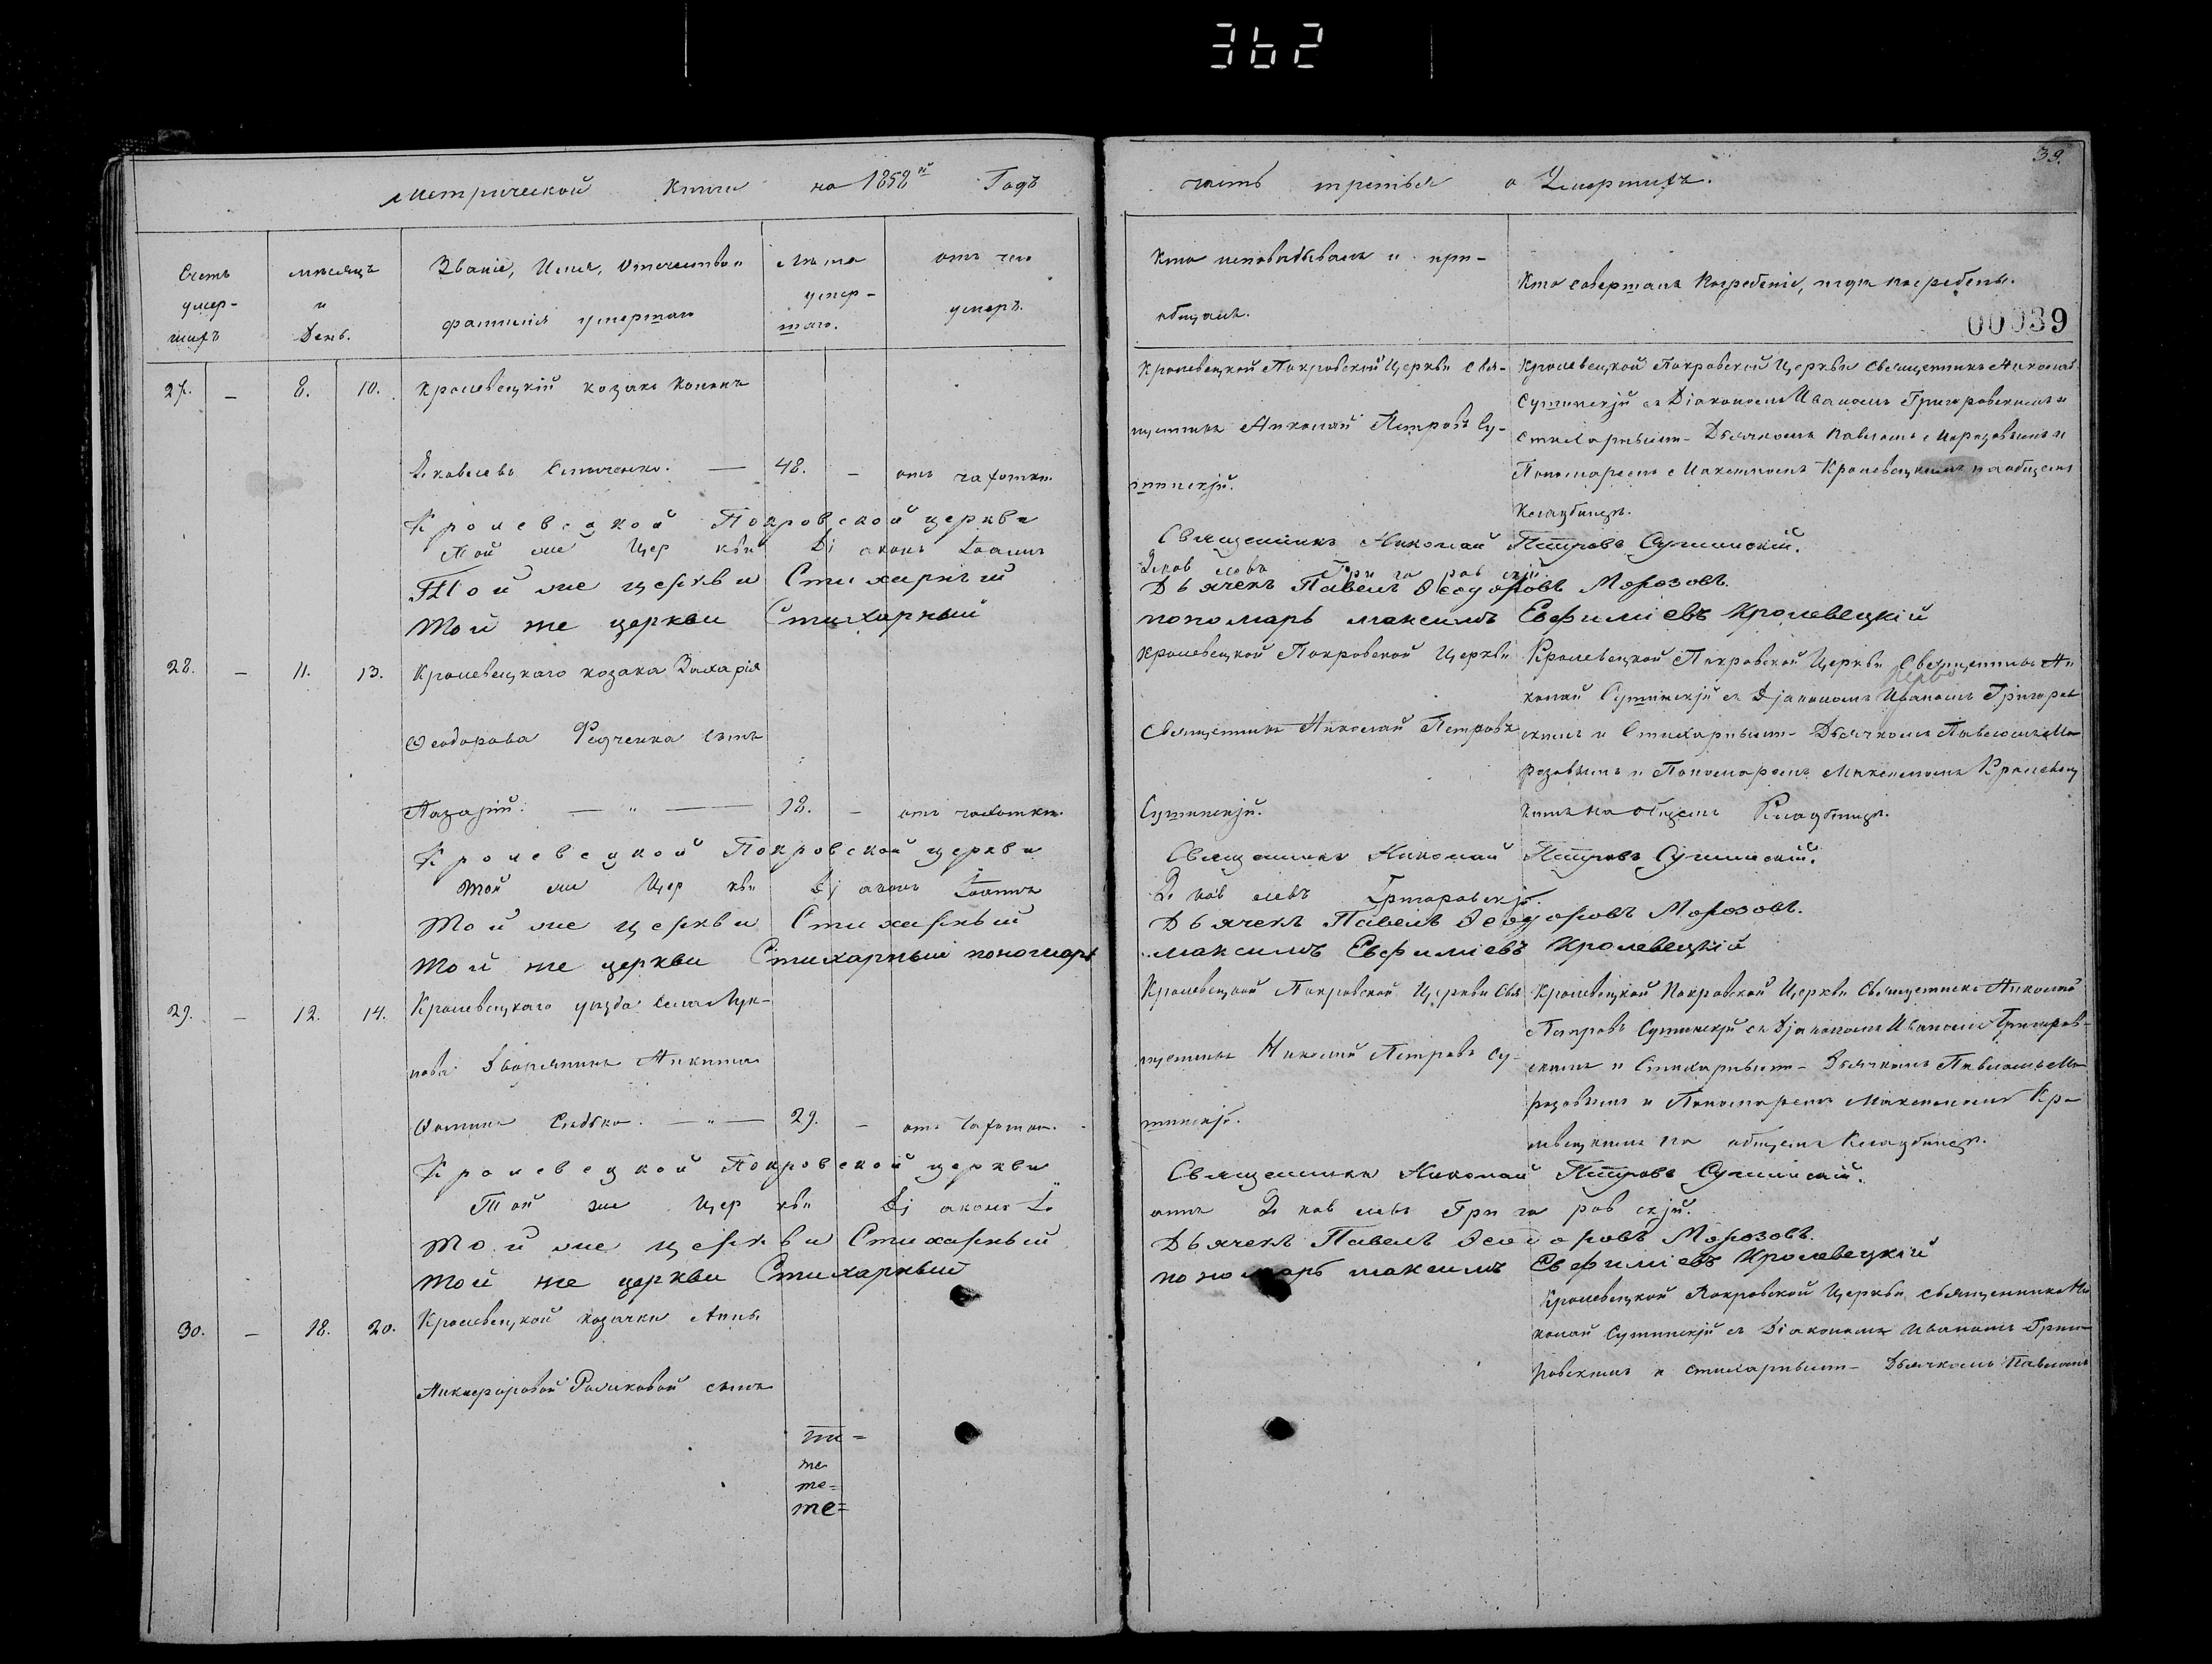 362
39.
Метрической Книги на 1858й Годъ
часть третья о Умершихъ.
Счетъ умер-шихъ
мѣсяцъ и День.
Званіе, Имя, Отечество и фамилія умершаго
Лѣта умер-шаго.
отъ чего умеръ.
Кто исповѣдывалъ и прі-общалъ.
Кто совершалъ Погребеніе, и гдѣ погребены.
00039
27. — 8. 10. Кролевецкій козакъ Кононъ
Яковлевъ 48. — отъ чахотки.
Кролевецкой Покровской Церкви Свя-
щенникъ Николай Петровъ Су-
шинскій.
Кролевецкой Покровской Церкви Священникъ Николай
Сушинскій съ Діакономъ Иваномъ Григоровскимъ и
Стихарнымъ Дьячкомъ Павломъ Морозовымъ и
Пономаремъ Максимомъ Кролевецкимъ на общемъ
Кладбищѣ.
Кролевецкой Покровской церкви Священникъ Николай Петровъ Сушинскій.
Той же Церкви Діаконъ Іоаннъ Яковлевъ Григоровскій.
Той же церкви Стихарный Дьячекъ Павелъ Ѳеодоровъ Морозовъ.
Той же церкви Стихарный пономарь Максимъ Евфиміевъ Кролевецкій
28. — 11. 13. Кролевецкаго козака Захарія
Ѳеодорова Федченка сынъ
Лазарій. — " — 18. — отъ чахотки.
Кролевецкой Покровской Церкви
Священникъ Николай Петровъ
Сушинскій.
Кролевецкой Покровской Церкви Священникъ Ни
колай Сушинскій съ Діакономъ Иваномъ Григоров
скимъ и Стихарнымъ Дьячкомъ Павломъ Мо
розовымъ и Пономаремъ Максимомъ Кролевец
кимъ на общемъ Кладбищѣ.
Кролевецкой Покровской церкви Священникъ Николай Петровъ Сушинскій.
Той же Церкви Діаконъ Іоаннъ Яковлевъ Григоровскій.
Той же церкви Стихарный Дьячекъ Павелъ Ѳеодоровъ Морозовъ.
Той же церкви Стихарный пономарь Максимъ Евфиміевъ Кролевецкій
29. — 12. 14. Кролевецкаго уѣзда села Лук-
нова Дворянинъ Никита
Фоминъ — " — 29. — отъ Чахотки.
Кролевецкой Покровской Церкви Свя
щенникъ Николай Петровъ Су-
шинскій.
Кролевецкой Покровской Церкви Священникъ Николай
Петровъ Сушинскій съ Діакономъ Иваномъ Григоров-
скимъ и Стихарнымъ Дьячкомъ Павломъ Мо
розовымъ и Пономаремъ Максимомъ Кро
левецкимъ на общемъ Кладбищѣ.
Кролевецкой Покровской церкви Священникъ Николай Петровъ Сушинскій.
Той же Церкви Діаконъ Іоаннъ Яковлевъ Григоровскій.
Той же церкви Стихарный Дьячекъ Павелъ Ѳеодоровъ Морозовъ.
Той же церкви Стихарный пономарь Максимъ Евфиміевъ Кролевецкій
30. — 18. 20. Кролевецкой козачки Анны
Никифоровой сынъ
Кролевецкой Покровской Церкви священникъ Ни
колай Сушинскій съ Діакономъ Иваномъ Григо
ровскимъ и стихарнымъ Дьячкомъ Павломъ
те
те=
те=